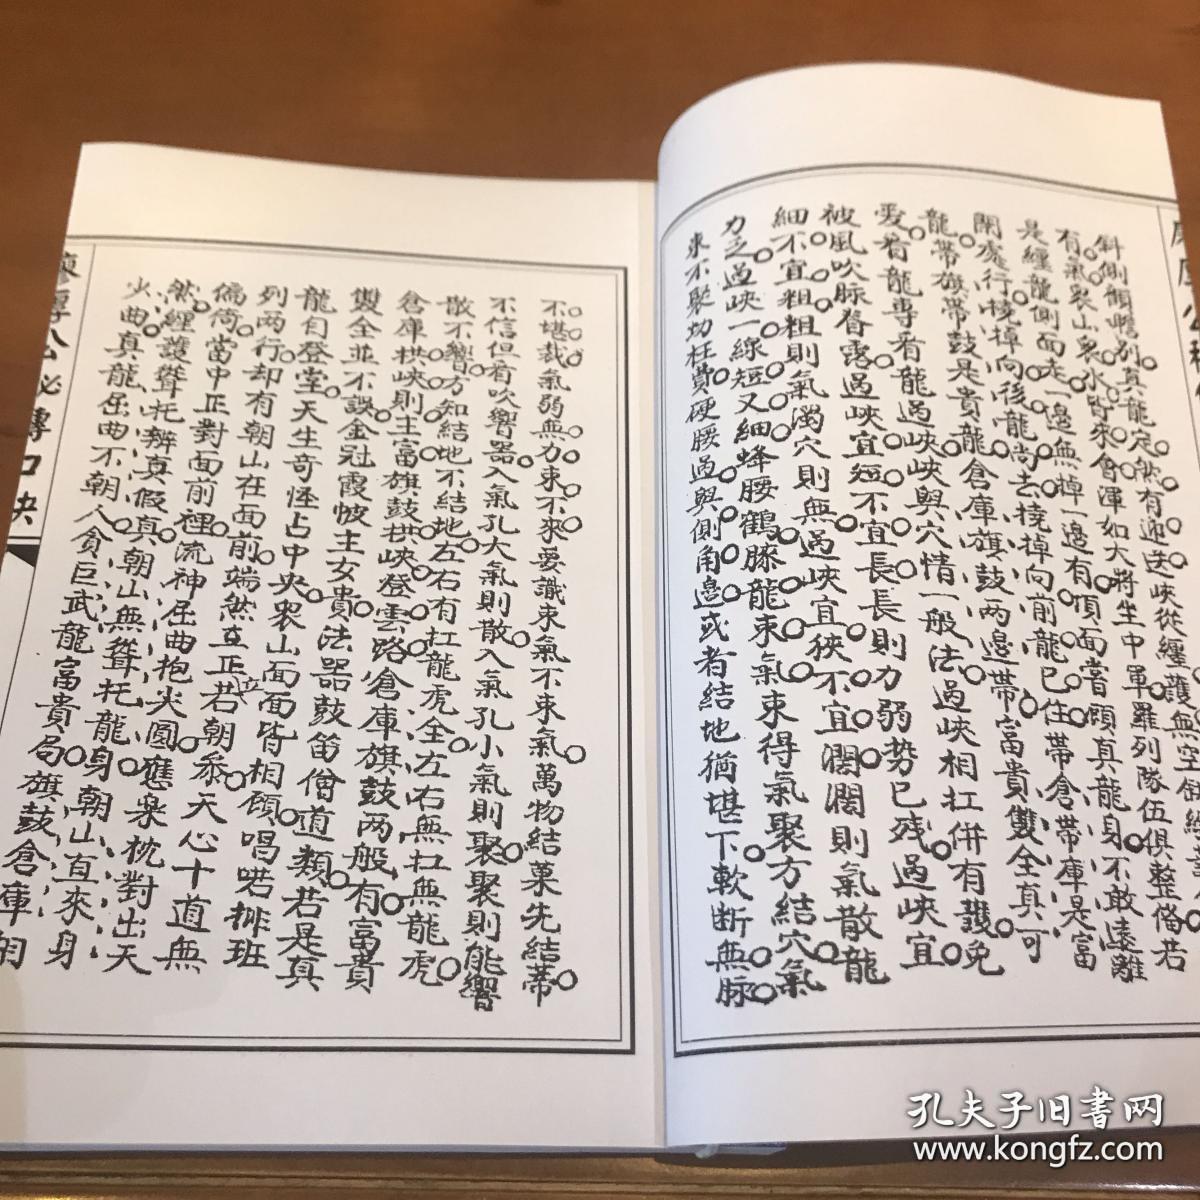 斜側顧鴨別真龍定然有迎送峽從纏護無空缺纏
有氣衆山衆水皆來會渾如大將坐中軍羅列隊伍俱整俻若
是纏龍側面走一邊無棹一邊有頂面當顧真龍身不敢遠離
閑處行橈棹向後龍尚去橈棹向前龍已住帶倉帶庫是富
龍帶旗帶鼓是貴龍倉庫旗鼓两邊帶富貴雙全真可
愛看龍專看龍過峽峽與穴情一般法過峽相扛併有護免
被風吹脉脊露過峽宜短不宜長長則力弱势已残過峽宜
細不宜粗粗則氣濁穴則無過峽宜狹不宜濶濶則氣散龍
力乏過峽一線短又細蜂腰鶴膝龍束氣束得氣聚方結穴氣
束不聚切枉費硬腰過與側角邊或者結地猶堪下軟断無脉
不堪裁氣弱無力束不來要識束氣不束氣萬物結菓先結蒂
不信但看吹響器入氣孔大氣則散入氣孔小氣則聚聚則能響
散不響方知結地不結地左右有扛龍虎全左右無扛無龍虎
倉庫拱峽則主富旗鼓拱峽登雲路倉庫旗鼓两般有富貴
雙全並不誤金冠霞帔主女貴法器鼓笛僧道類若是真
龍自登堂天生奇怪占中央衆山面面皆相顧唱喏排班
列两行却有朝山在面前端然立正若朝叅天心十道無
偏倚當中正對面前裡流神屈曲抱尖圓應樂枕對出天
然纏護聳托辨真假真朝山無聳托龍身朝山直來身
火曲真龍屈曲不朝人貪巨武龍富貴局旗鼓倉庫羅
廖厚公秘傳口决
孔夫子旧书网
www.kongfz.com